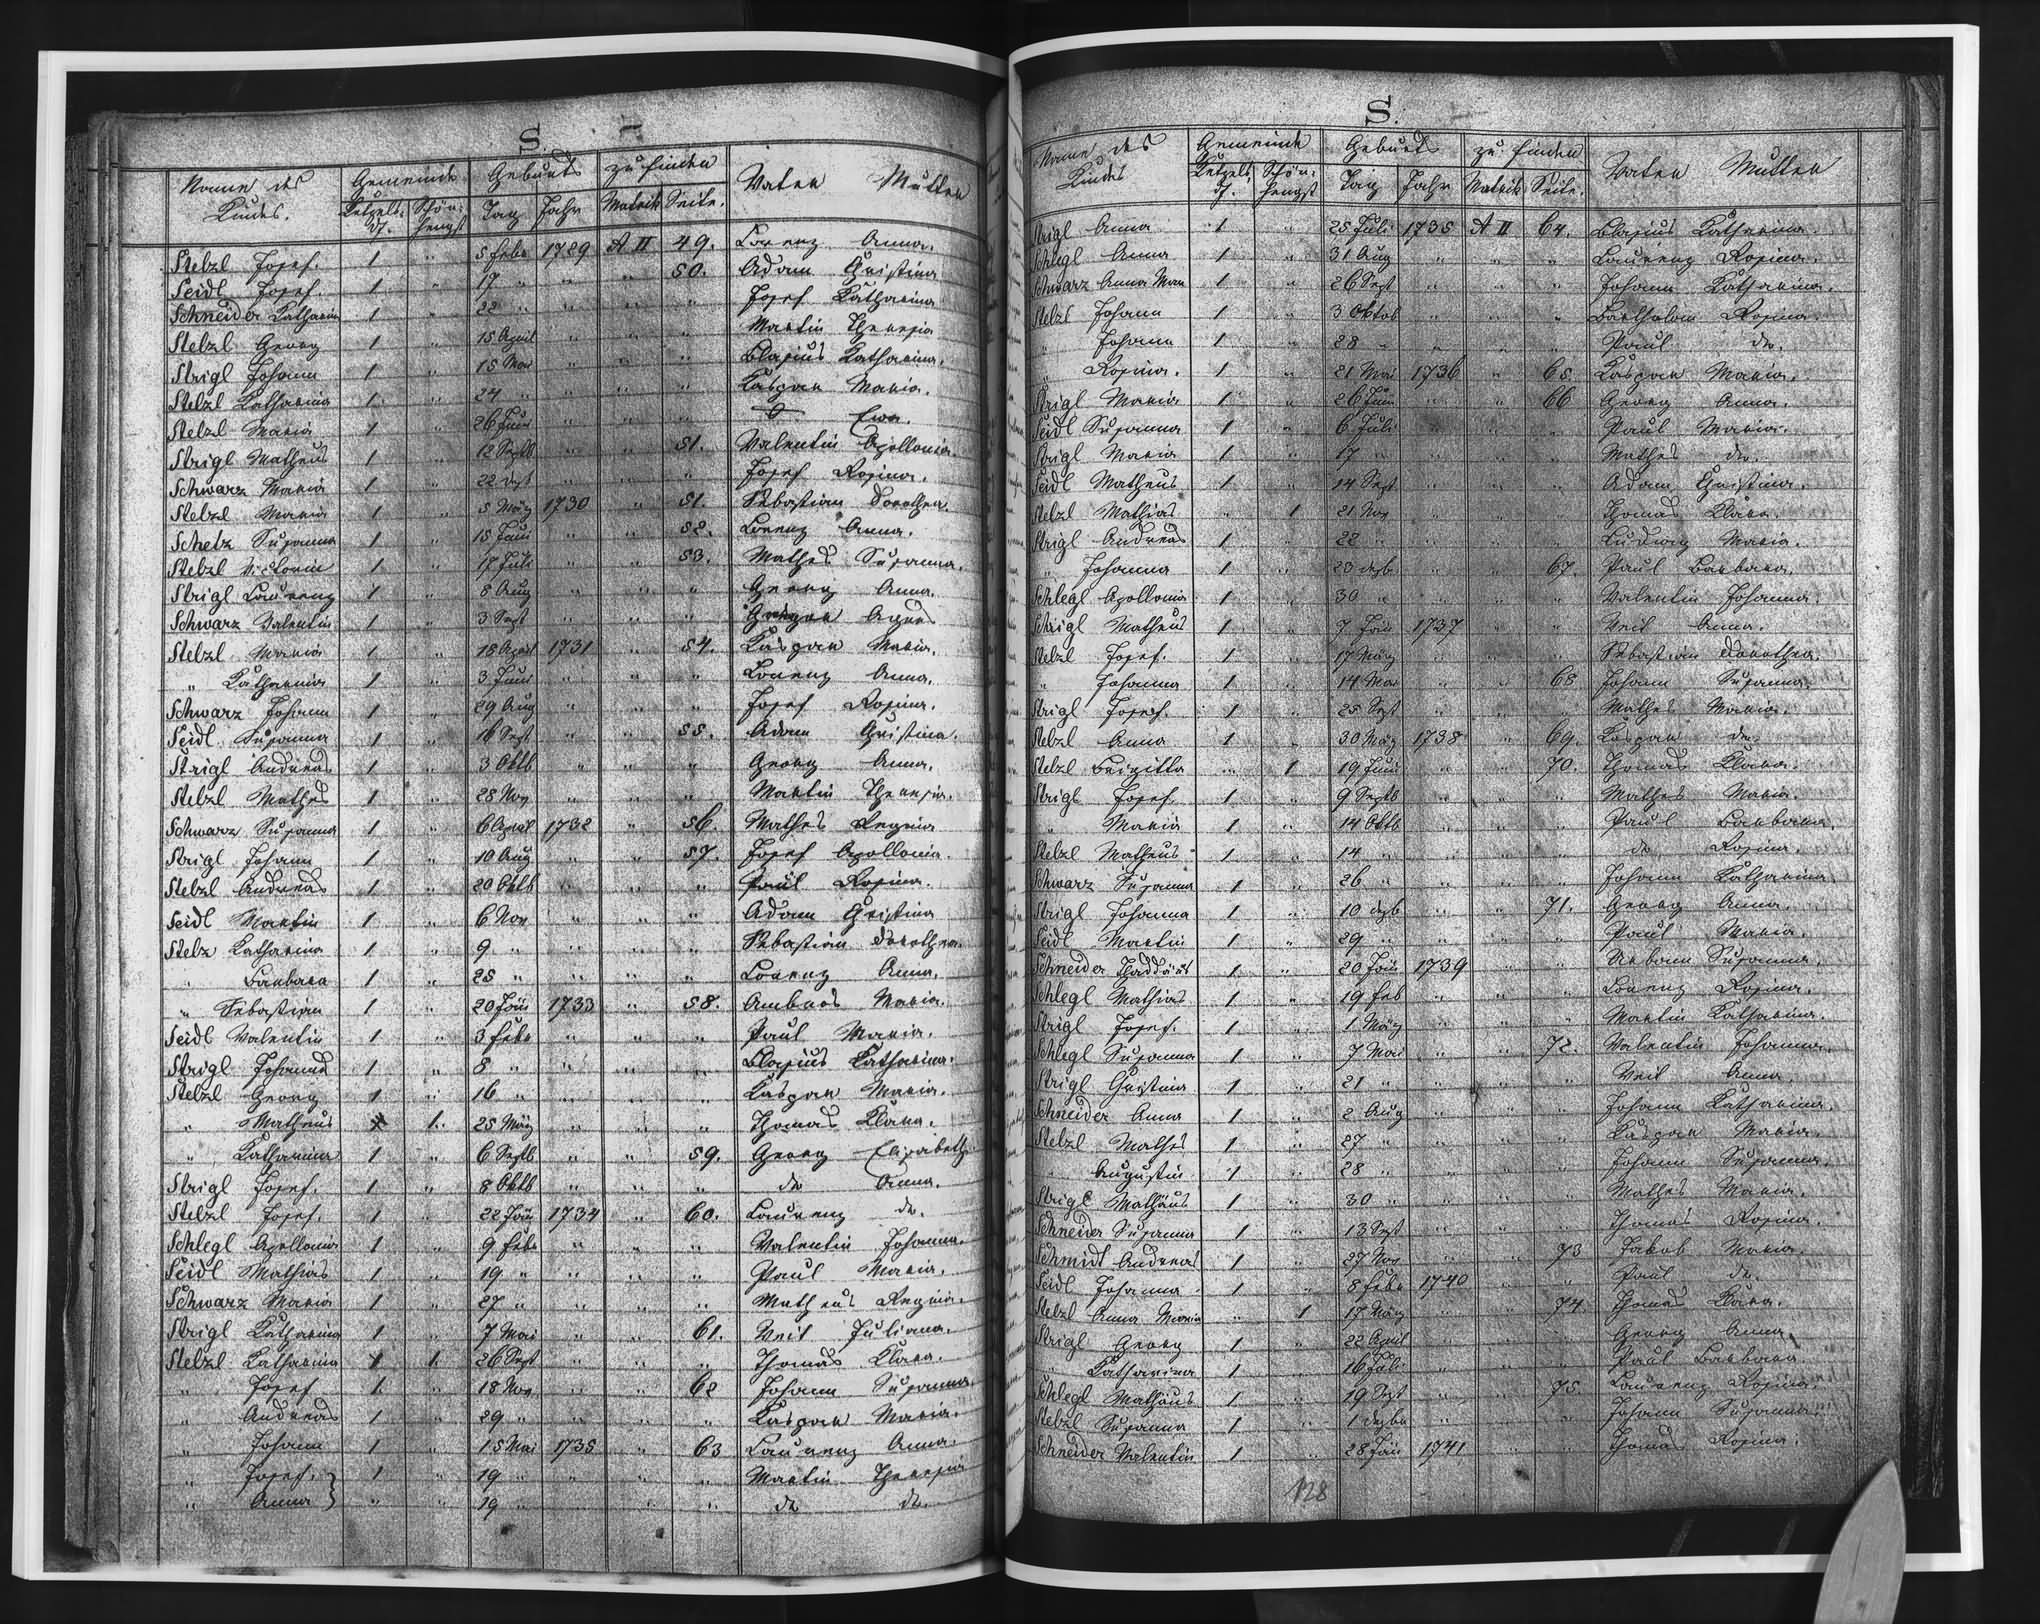 S.
Name des Kindes. Gemeinde Geburts zu finden Vater Mutter
Ketzelsdf. Schönhengst Tag Jahr Matrik Seite.
Stelzl Josef. 1 " 5 Febr 1729 A II 49. Lorenz Anna.
Seidl Josef 1 " 17 " " " 50. Adam Christina
Schneider Katharina 1 " 22 " " " " Josef Katharina
Stelzl Georg 1 " 15 April " " " Martin Theresia
Strigl Johann 1 " 15 Mai " " " Blasius Katharina.
Stelzl Katharina 1 " 24 " " " " Kaspar Maria.
Stelzl Maria 1 " 26 Juni " " " Ewa.
Strigl Matheus 1 " 12 Septb " " 51. Valentin Apollonia.
Schwarz Maria 1 " 22 dezt " " " Josef Rosina.
Stelzl Maria 1 " 5 März 1730 " 51. Sebastian Dorothea.
Schelz Susanna 1 " 15 Juni " " 52. Lorenz Anna.
Stelzl Victorin 1 " 17 Juli " " 53. Mathes Susanna.
Strigl Laurenz 1 " 8 Aug " " " Georg Anna.
Schwarz Valentin 1 " 3 Sept " " " Agnes
Stelzl Maria 1 " 18 April 1731 " 54. Kaspar Maria.
" Katharina 1 " 3 Juni " " " Lorenz Anna.
Schwarz Johann 1 " 29 Aug " " " Josef Rosina.
Seidl Susanna 1 " 16 Sept " " 55. Adam Christina.
Strigl Andreas 1 " 3 Oktb " " " Georg Anna.
Stelzl Mathes 1 " 28 Nov " " " Martin Theresia.
Schwarz Susanna 1 " 6 April 1732 " 56. Mathes Regina
Strigl Johann 1 " 10 Aug " " 57. Josef Apollonia.
Stelzl Andreas 1 " 20 Oktb " " " Paul Rosina.
Seidl Martin 1 " 6 Nov " " " Adam Christina
Stelz Katharina 1 " 9 " " " " Sebastian Dorothea.
" Barbara 1 " 25 " " " " Lorenz Anna.
" Sebastian 1 " 20 Jän 1733 " 58. Ambros Maria.
Seidl Valentin 1 " 3 Febr " " " Paul Maria.
Strigl Johanna 1 " 8 " " " " Blasius Katharina.
Stelzl Georg 1 " 16 " " " " Kaspar Maria.
" Matheus 1. 25 März " " " Thomas Klara.
" Katharina 1 " 6 Septb " " 59. Georg Elisabeth
Strigl Josef. 1 " 8 Oktb " " " do Anna.
Stelzl Josef. 1 " 22 Jän 1734 " 60. Laurenz do.
Schlegl Apollonia 1 " 9 Febr " " " Valentin Johanna.
Seidl Mathias 1 " 19 " " " " Paul Maria.
Schwarz Maria 1 " 27 " " " " Matheus Regina.
Strigl Katharina 1 " 7 Mai " " 61. Veit Juliana.
Stelzl Katharina 1. 26 Sept " " " Thomas Klara.
" Josef 1. " 18 Nov " " 62 Johann Susanna.
" Andreas 1 " 29 " " " " Kaspar Maria.
" Johann 1 " 15 Mai 1735 " 63 Laurenz Anna.
" Josef. 1 " 19 " " " " Martin Theresia
" Anna " " 19 " " " " do do.
S.
Name des Kindes Gemeinde Geburts zu finden Vater Mutter
Ketzelsdf. Schönhengst Tag Jahr Matrik Seite.
Strigl Anna 1 " 25 Juli 1735 A II 64. Blasius Katharina.
Schlegl Anna 1 " 31 Aug " " " Laurenz Rosina.
Schwarz Anna Mar 1 " 26 Sept " " " Johann Katharina.
Stelzl Johann 1 " 3 Oktob " " " Barthalom Rosina.
" Johann 1 " 28 " " " " Paul do.
Rosina. 1 " 21 Mai 1736 " 65. Kaspar Maria.
Strigl Maria 1 " 26 Juni " " 66 Georg Anna.
Seidl Susanna 1 " 6 Juli " " " Paul Maria.
Strigl Maria 1 " 17 " " " " Mathes do.
Seidl Matheus 1 " 14 Sept " " " Adam Christina.
Stelzl Mathias " 1 21 Nov " " " Thomas Klara.
Strigl Andreas 1 " 22 " " " " Ludwig Maria.
" Johanna 1 " 23 dezb " " 67. Paul Barbara.
Schlegl Apollonia 1 " 30 " " " " Valentin Johanna.
Strigl Matheus 1 " 7 Jän 1737 " " Veit Anna.
Stelzl Josef. 1 " 17 März " " " Sebastian Dorothea.
" Johanna 1 " 14 Mai " " 68 Johann Susanna.
Strigl Josef. 1 " 25 Sept " " " Mathes Maria.
Stelzl Anna 1 " 30 März 1738 " 69. Kaspar do.
Stelzl Brigitta " 1 19 Juni " " 70. Thomas Klara.
Strigl Josef 1 " 9 Septb " " " Mathes Maria.
" Maria 1 " 14 Oktb " " " Paul Barbara.
Stelzl Matheus 1 " 14 " " " " do Rosina.
Schwarz Susanna 1 " 26 " " " " Johann Katharina
Strigl Johanna 1 " 10 dezb " " 71. Georg Anna.
Seidl Martin 1 " 29 " " " " Paul Maria.
Schneider Thaddäus 1 " 20 Jän 1739 " " Urban Susanna.
Schlegl Mathias 1 " 19 Feb " " " Lorenz Rosina.
Strigl Josef. 1 " 1 März " " " Martin Katharina.
Schlegl Susanna 1 " 7 Mai " " 72. Valentin Johanna.
Strigl Christina 1 " 21 " " " " Veit Anna.
Schneider Anna 1 " 2 Aug " " " Johann Katharina.
Stelzl Mathes 1 " 27 " " " " Kaspar Maria.
Augustin 1 " 28 " " " " Johann Susanna.
Strigl Mathäus 1 " 30 " " " " Mathes Maria.
Schneider Susanna 1 " 13 Sept " " " Thomas Rosina.
Schmidt Andreas 1 " 27 Nov " " 73 Jakob Maria.
Seidl Johanna 1 " 8 Febr 1740 " " Paul do.
Stelzl Anna Maria " 1 17 März " " 74. Thomas Klara.
Strigl Georg 1 " 22 April " " " Georg Anna.
" Katharina 1 " 16 Juli " " " Paul Barbara
Schlegl Mathäus 1 " 19 Sept " " 75. Laurenz Rosina.
Stelzl Susanna 1 " 1 dezbr " " " Johann Susanna.
Schneider Valentin 1 " 28 Jän 1741 " " Thomas Rosina.
128